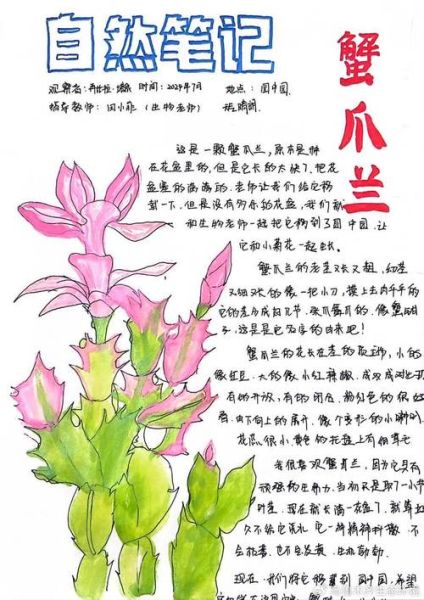 自然笔记
蟹爪兰
观察者: 时间:2024年7月 地点:园中园
指导教师:田小菲(生物老师)
这是一颗蟹爪兰,原本是种
在花盆里的,但是它长的太快了,把花
盆塞的满满的,老师让我们给它移
栽一下,但是没有多余的花盆,我们就
和生物老师一起把它移到了园中园,让
它和小菊花一起生长。
蟹爪兰的老茎又长又粗,幼茎
又细又长的像一把小刀,摸上去肉乎乎的
它的茎分成好几节,张爪舞爪的,像蟹钳
子,这是是它名字的由来吧!
蟹爪兰的花长在茎的顶端,小的
像红豆,大的像小红辣椒,
有的开放,有的闭合,粉红色的
着,由下向上的展开,像个变形的小喇叭
花瓣很小,黄色的花蕊上有
我很喜欢蟹爪兰,因为它具有
顽强的生命力,当初只是取了一小节
叶茎,现在就长满一花盆了,就算
久不给它浇水,它一样精神抖擞,不
会枯萎,也不会发黄,生机勃勃
现在,我们将它移栽到园中园,希望